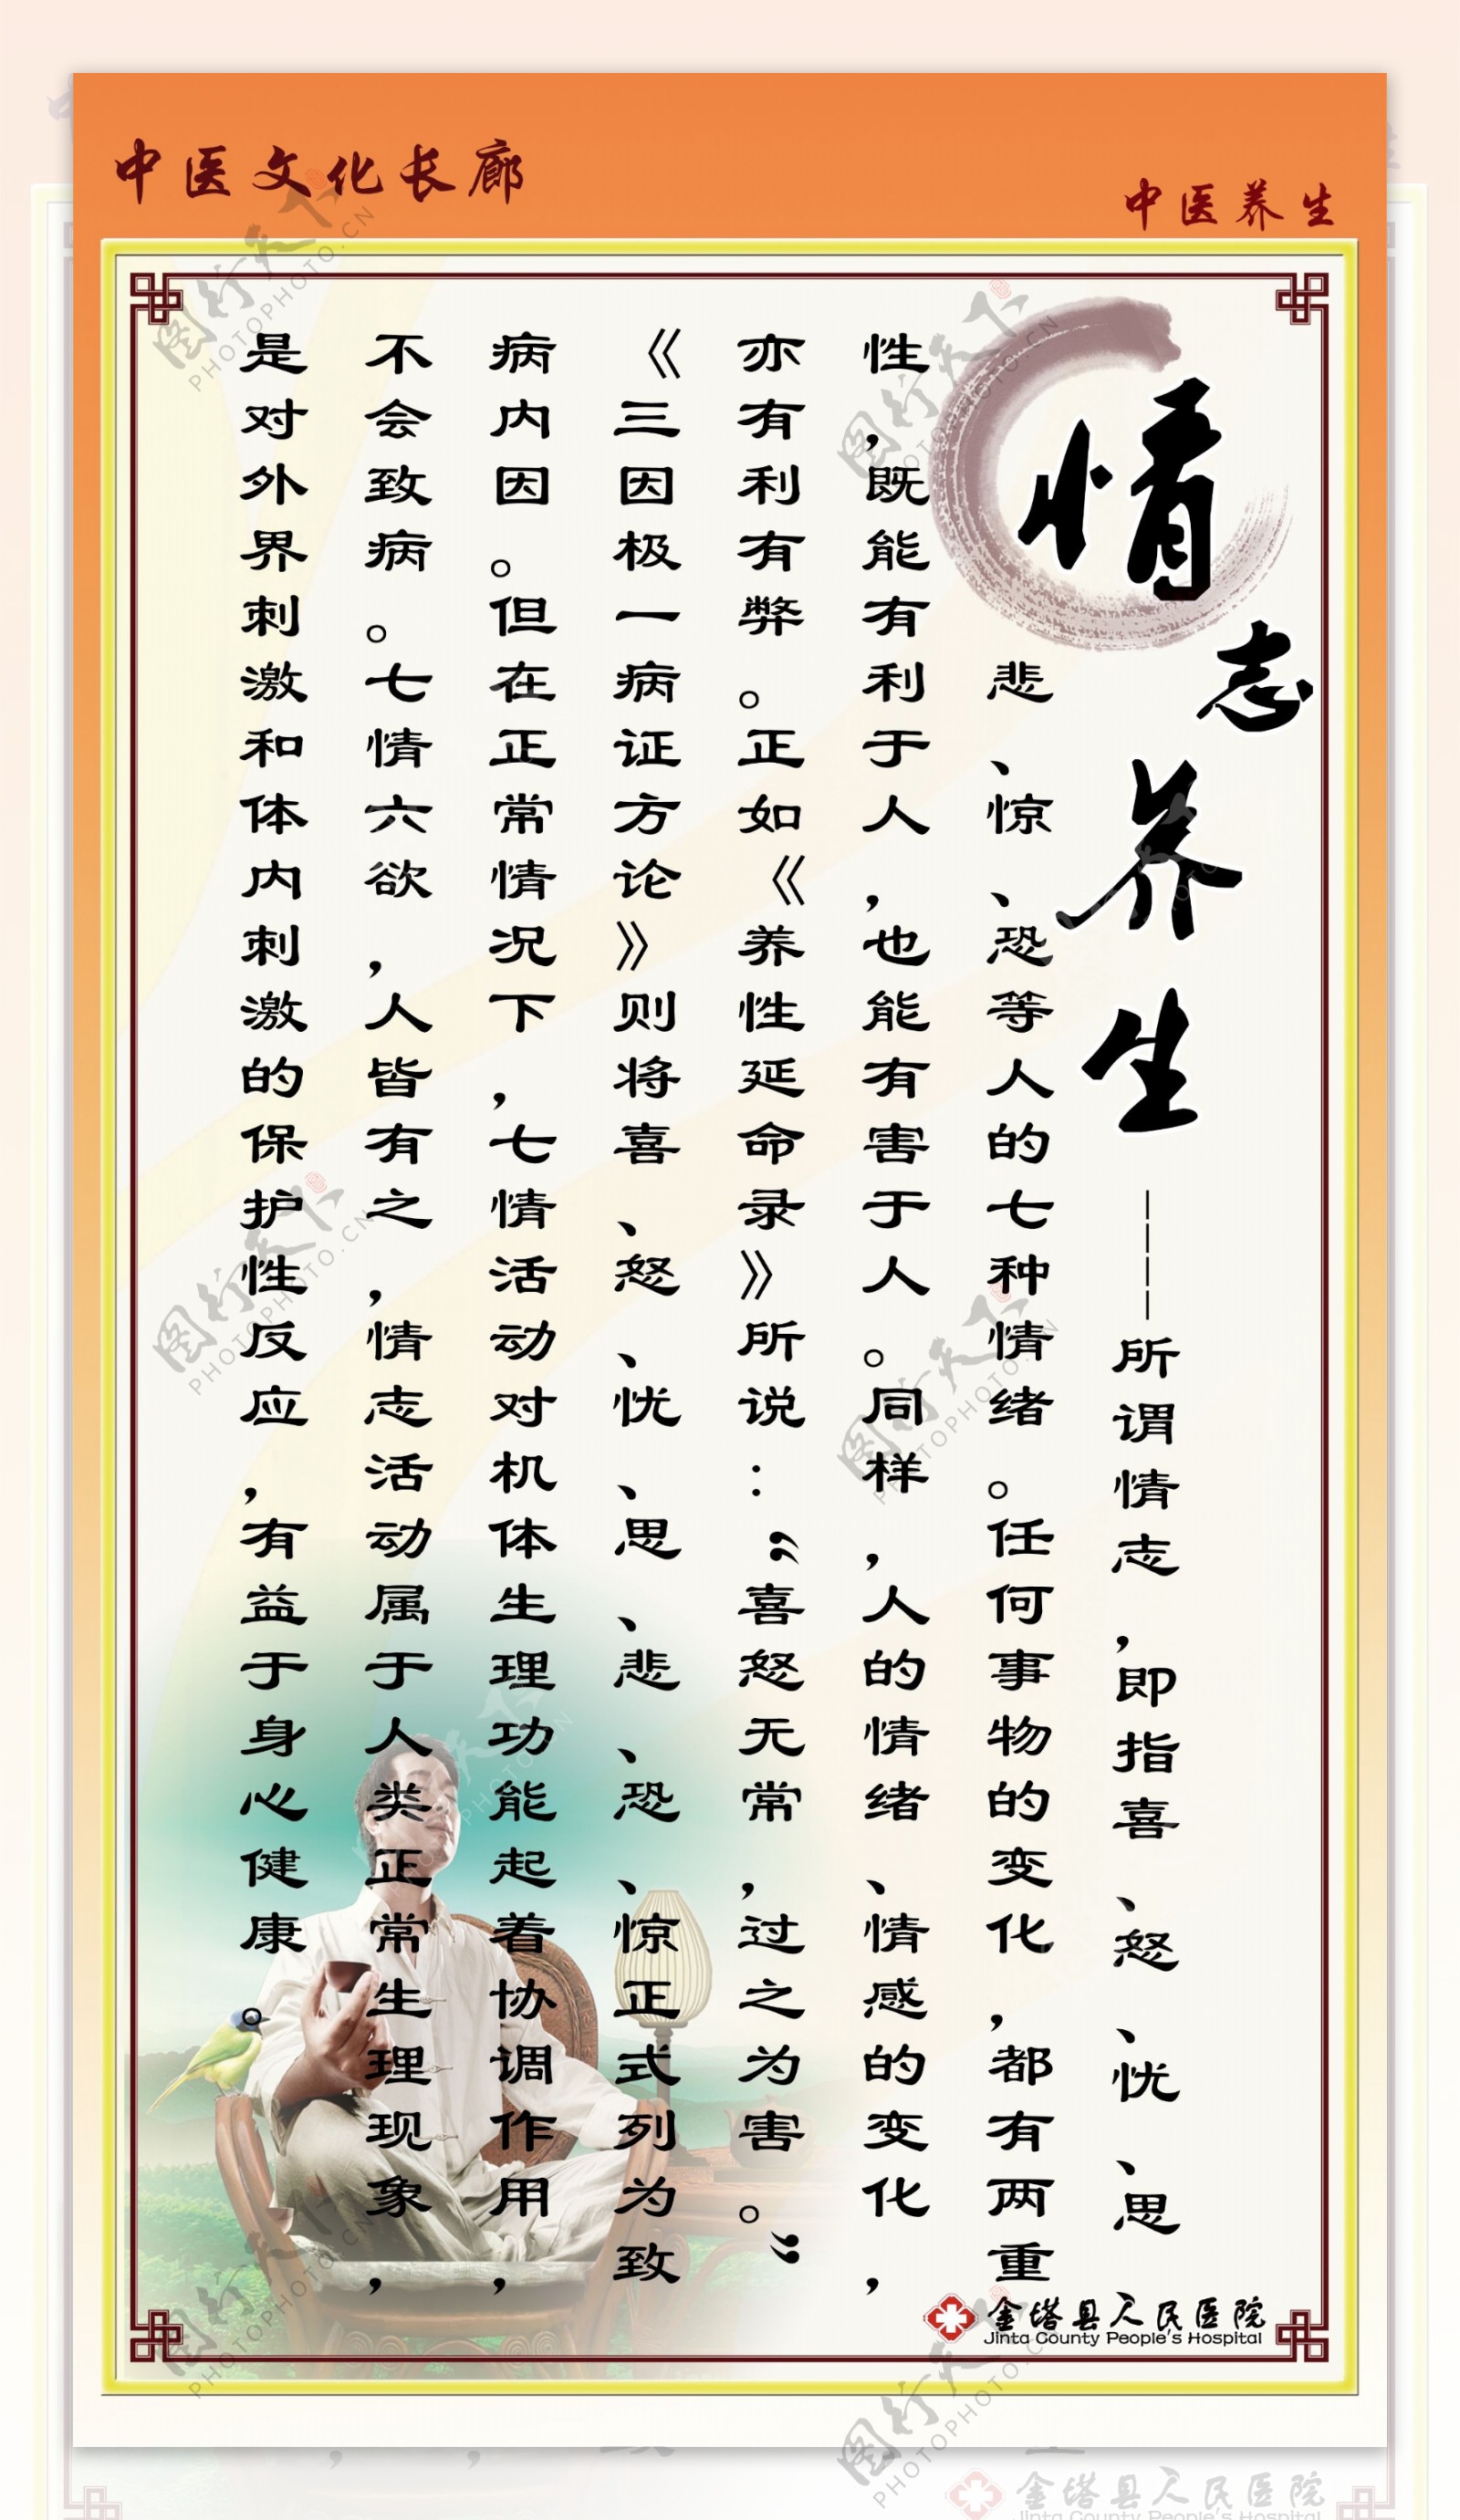 中医文化长廊
中医养生
情志养生
————所谓情志,即指喜、怒、忧、思、
悲、惊、恐等人的七种情绪。任何事物的变化,都有两重
性,既能有利于人,也能有害于人。同样,人的情绪、情感的变化,
亦有利有弊。正如《养性延命录》所说:“喜怒无常,过之为害。”
《三因极一病证方论》则将喜、怒、忧、思、悲、恐、惊正式列为致
病内因。但在正常情况下,七情活动对机体生理功能起着协调作用,
不会致病。七情六欲,人皆有之,情志活动属于人类正常生理现象,
是对外界刺激和体内刺激的保护性反应,有益于身心健康。
金塔县人民医院
Jinta County People's Hospital
图行天下
PHOTOPHOTO.CN
图行天下
PHOTOPHOTO.CN
图行天下
PHOTOPHOTO.CN
图行天下
PHOTOPHOTO.CN
金塔县人民医院
Jinta County People's Hospital